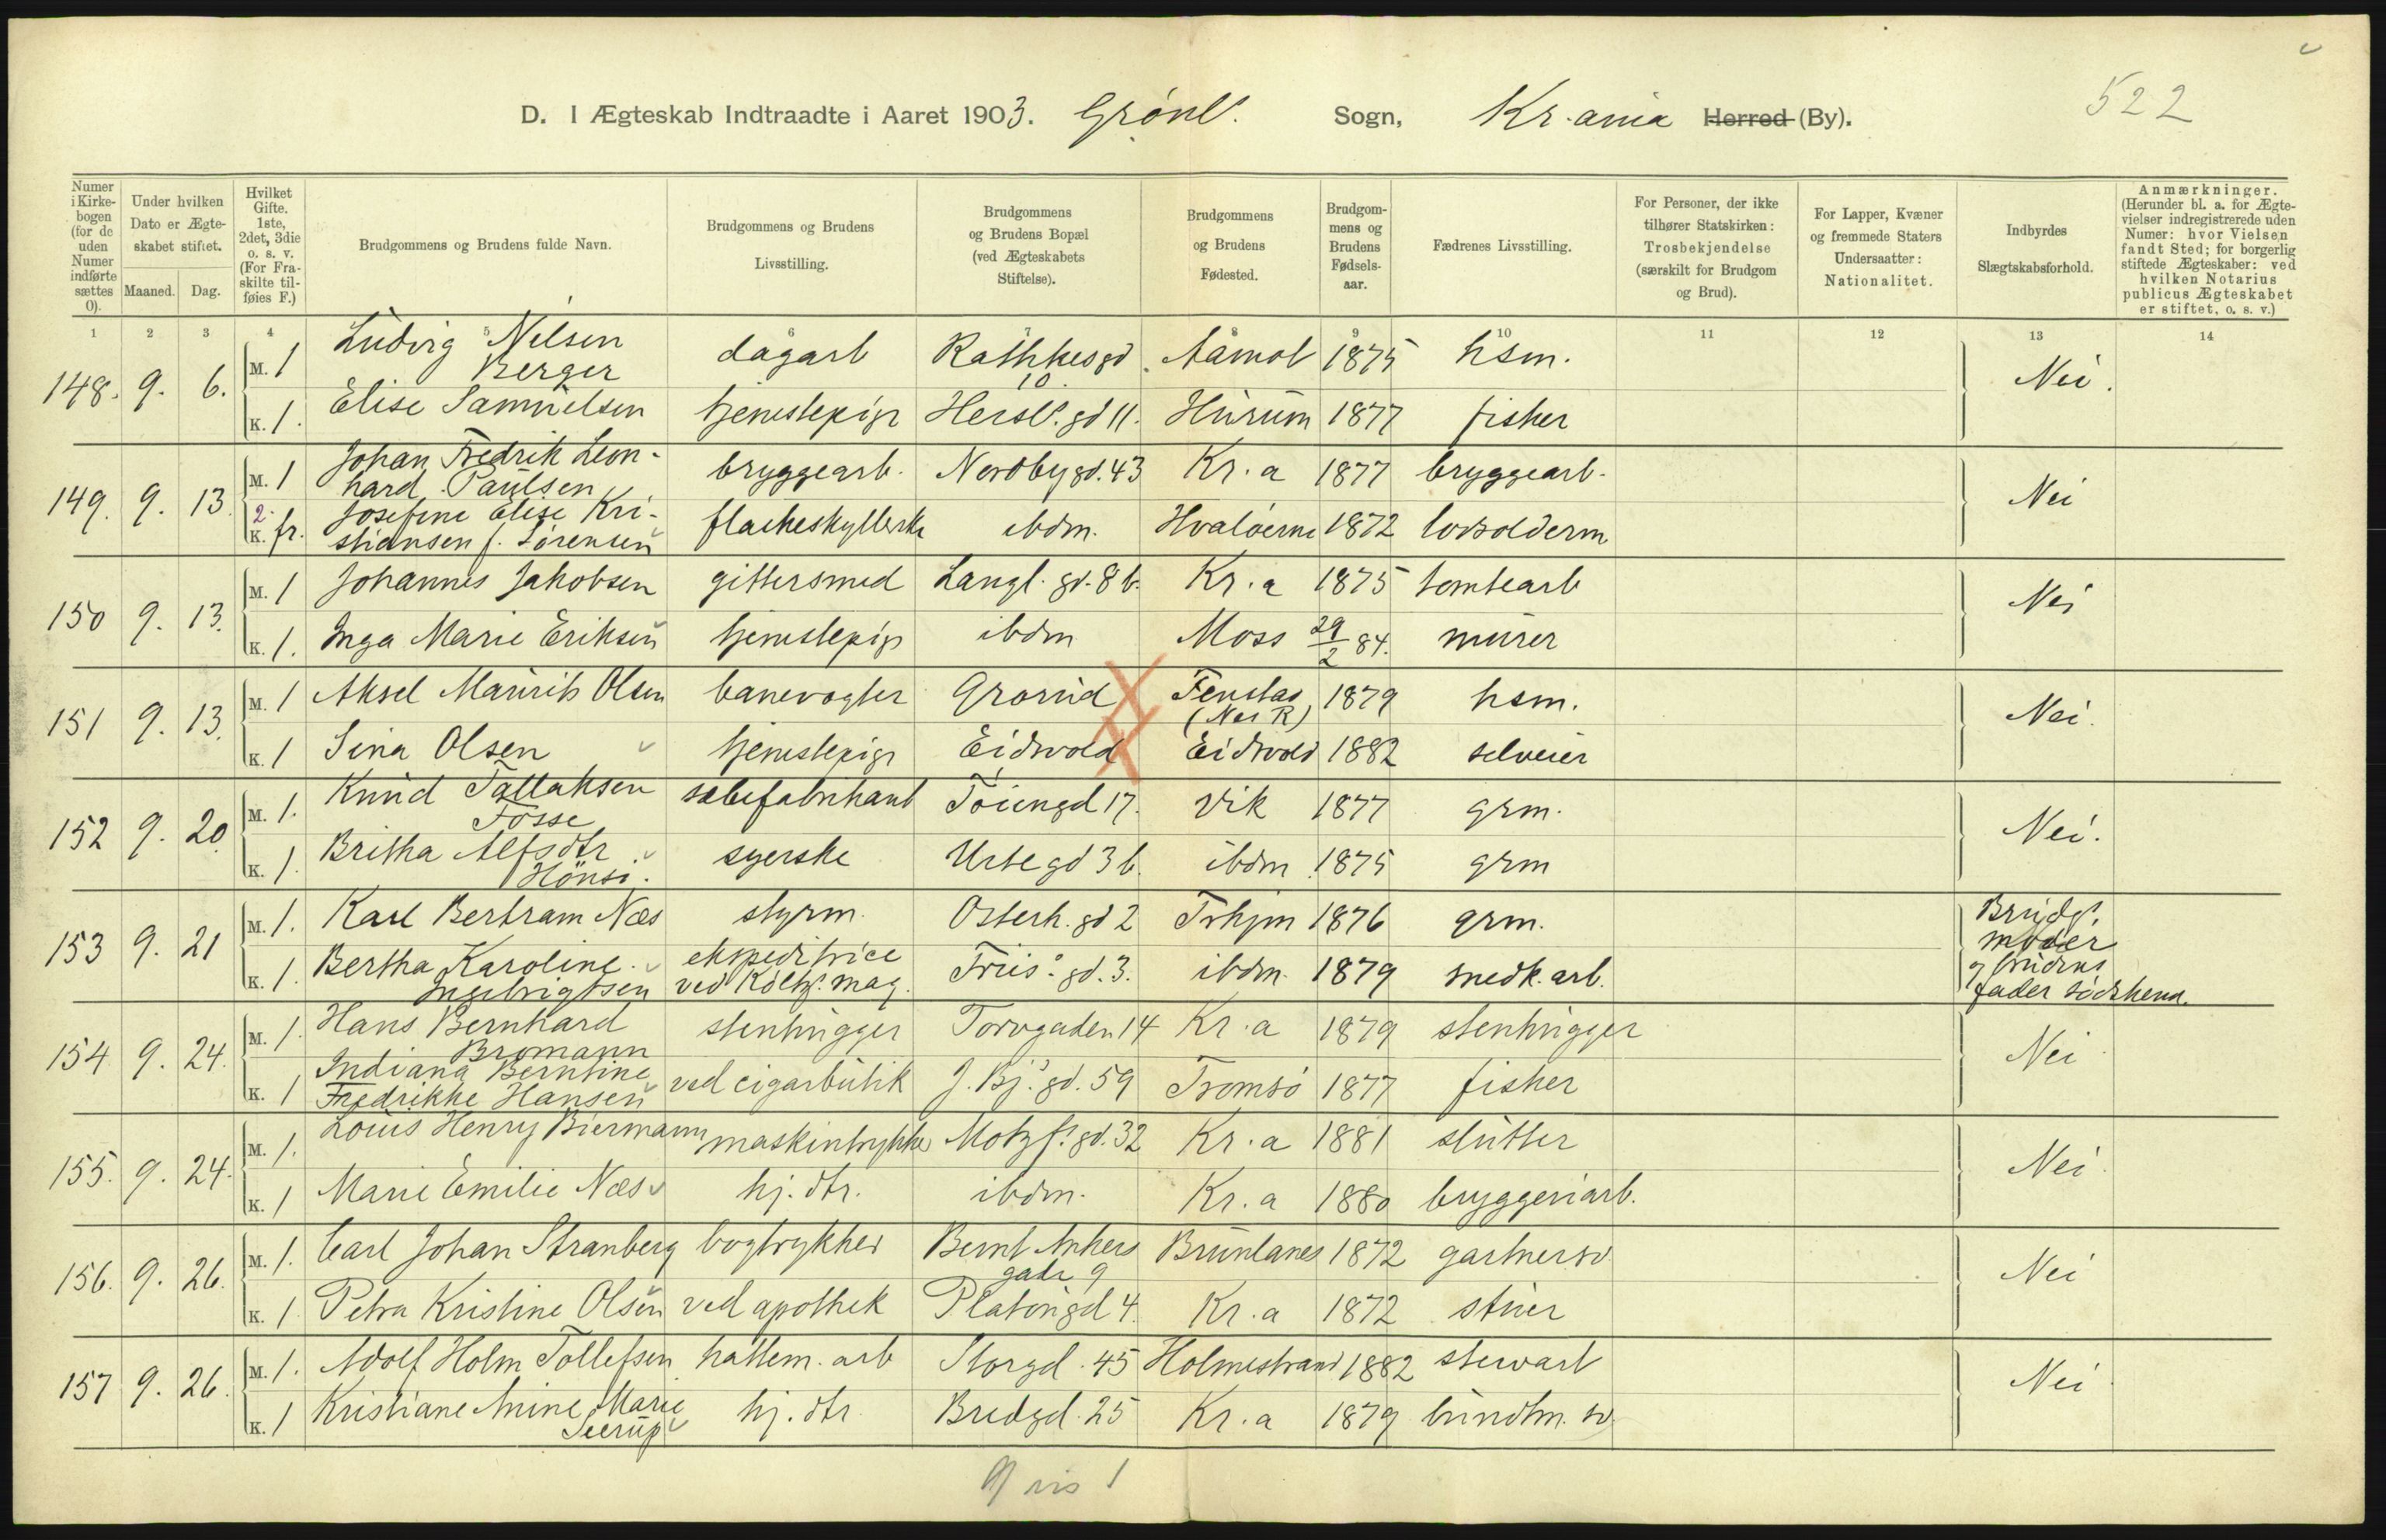 522
D. I Ægteskab Indtraadte i Aaret 1903. Grønl. Sogn, Kr.ania Herred (By).
Numer i Kirkebogen (for de uden Numer indførte sættes 0).
Under hvilken Dato er Ægteskabet stiftet.
Maaned. Dag.
Hvilket Gifte. 1ste, 2det, 3die o. s. v. (For Fraskilte tilføies F.)
Brudgommens og Brudens fulde Navn.
Brudgommens og Brudens Livsstilling.
Brudgommens og Brudens Bopæl (ved Ægteskabets Stiftelse).
Brudgommens og Brudens Fødested.
Brudgommens og Brudens Fødselsaar.
Fædrenes Livsstilling.
For Personer, der ikke tilhører Statskirken: Trosbekjendelse (særskilt for Brudgom og Brud).
For Lapper, Kvæner og fremmede Staters Undersaatter: Nationalitet.
Indbyrdes Slægtskabsforhold.
Anmærkninger. (Herunder bl. a. for Ægtevielser indregistrerede uden Numer: hvor Vielsen fandt Sted; for borgerlig stiftede Ægteskaber: ved hvilken Notarius publicus Ægteskabet er stiftet, o. s. v.)
1 2 3 4 5 6 7 8 9 10 11 12 13 14
148. 9. 6. M. 1 Ludvig Nilsen Berger dagarb Rathkesgd 10. Aamot 1875 hsm. Nei.
K. 1. Elise Samuelsen tjenestepige Hersl. gd 11. Hurum 1877 fisker
149. 9. 13. M. 1 Johan Fredrik Leonhard Paulsen bryggearb. Nordbygd. 43 Kr.a 1877 bryggearb. Nei
2. K. fr. Josefine Elise Kristiansen f. Sørensen flaskeskyllerske ibdm. Hvaløerne 1872 lodsolderm
150 9. 13. M. 1 Johannes Jakobsen gittersmed Langl. gd. 8 b. Kr.a 1875 tomtearb Nei
K. 1. Inga Marie Eriksen tjenestepige ibdm Moss 29/2 84. murer
151 9. 13. M. 1 Aksel Maurits Olsen banevogter Grorud Fenstad (Nes R) 1879 hsm. Nei.
K. 1 Sina Olsen tjenestepige Eidsvold Eidsvold 1882 selveier
152 9. 20. M. 1. Knud Tallaksen Fosse sæbefabrikant Tøiengd 17. Vik 1877 grm. Nei.
K. 1. Britha Alfsdtr. Hønsi. syerske Urtegd 3 b. ibdm 1875 grm
153 9. 21 M. 1. Karl Bertram Næs styrm. Osterh. gd 2 Trhjm 1876 grm. Brudg. moder og brudens fader södskend.
K. 1. Bertha Karoline Ingebrigtsen ekspeditrice ved Koltz. mag. Friis. gd. 3. ibdm. 1879 snedk. arb.
154 9. 24. M. 1. Hans Bernhard Bromann stenhugger Torvgaden 14 Kr.a 1879 stenhugger Nei
K. 1 Indiana Berntine Fredrikke Hansen ved cigarbutik J. Bj.s gd. 59 Tromsø 1877 fisker
155. 9. 24. M. 1. Louis Henry Biermann maskintrykker Motzf. gd. 32 Kr.a 1881 slutter Nei
K. 1 Marie Emilie Næs hj. dtr. ibdm. Kr.a 1880 bryggeriarb.
156. 9. 26. M. 1. Carl Johan Stranberg bogtrykker Bernt Ankers gade 9 Brunlanes 1872 gartnersv. Nei
K. 1 Petra Kristine Olsen ved apothek Platøugd 4. Kr.a 1872 stuer
157 9. 26. M. 1. Adolf Holm Tollefsen hattem. arb Storgd. 45 Holmestrand 1882 stewart Nei
K. 1 Kristiane Anine Marie Seerup hj. dtr Bredgd. 25 Kr.a 1879 bundtm. sv.